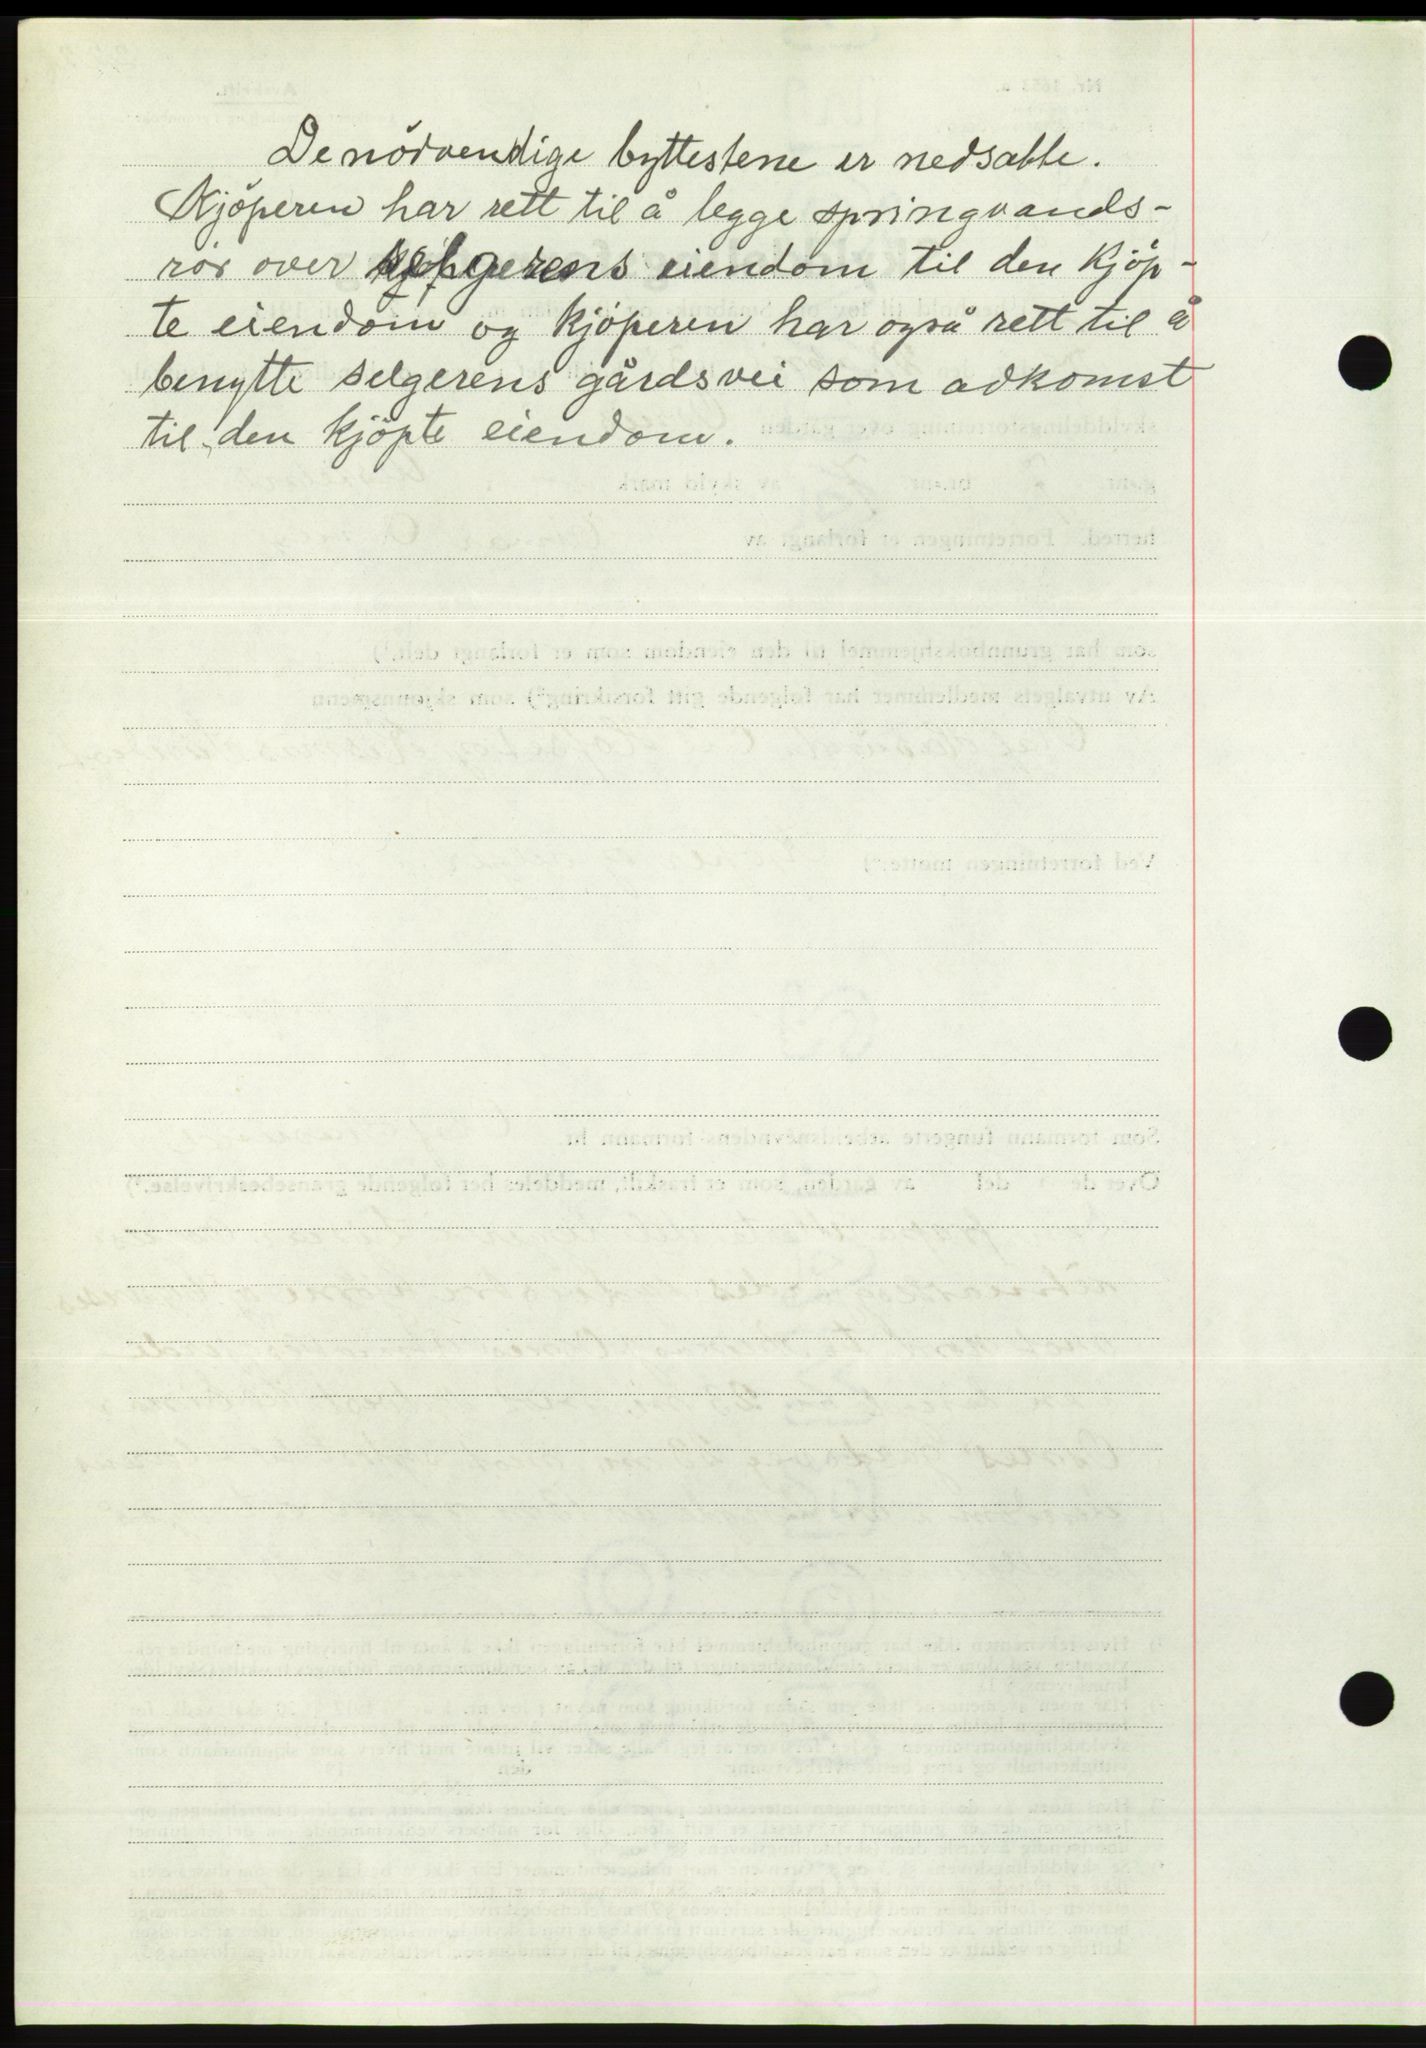 De nödvendige byttestene er nedsatte.
Kjöperen har rett til å legge springvands-
rör over selgerens eiendom til den kjöp-
te eiendom og kjöperen har også rett til å
benytte selgerens gårdsvei som adkomst
til den kjöpte eiendom.